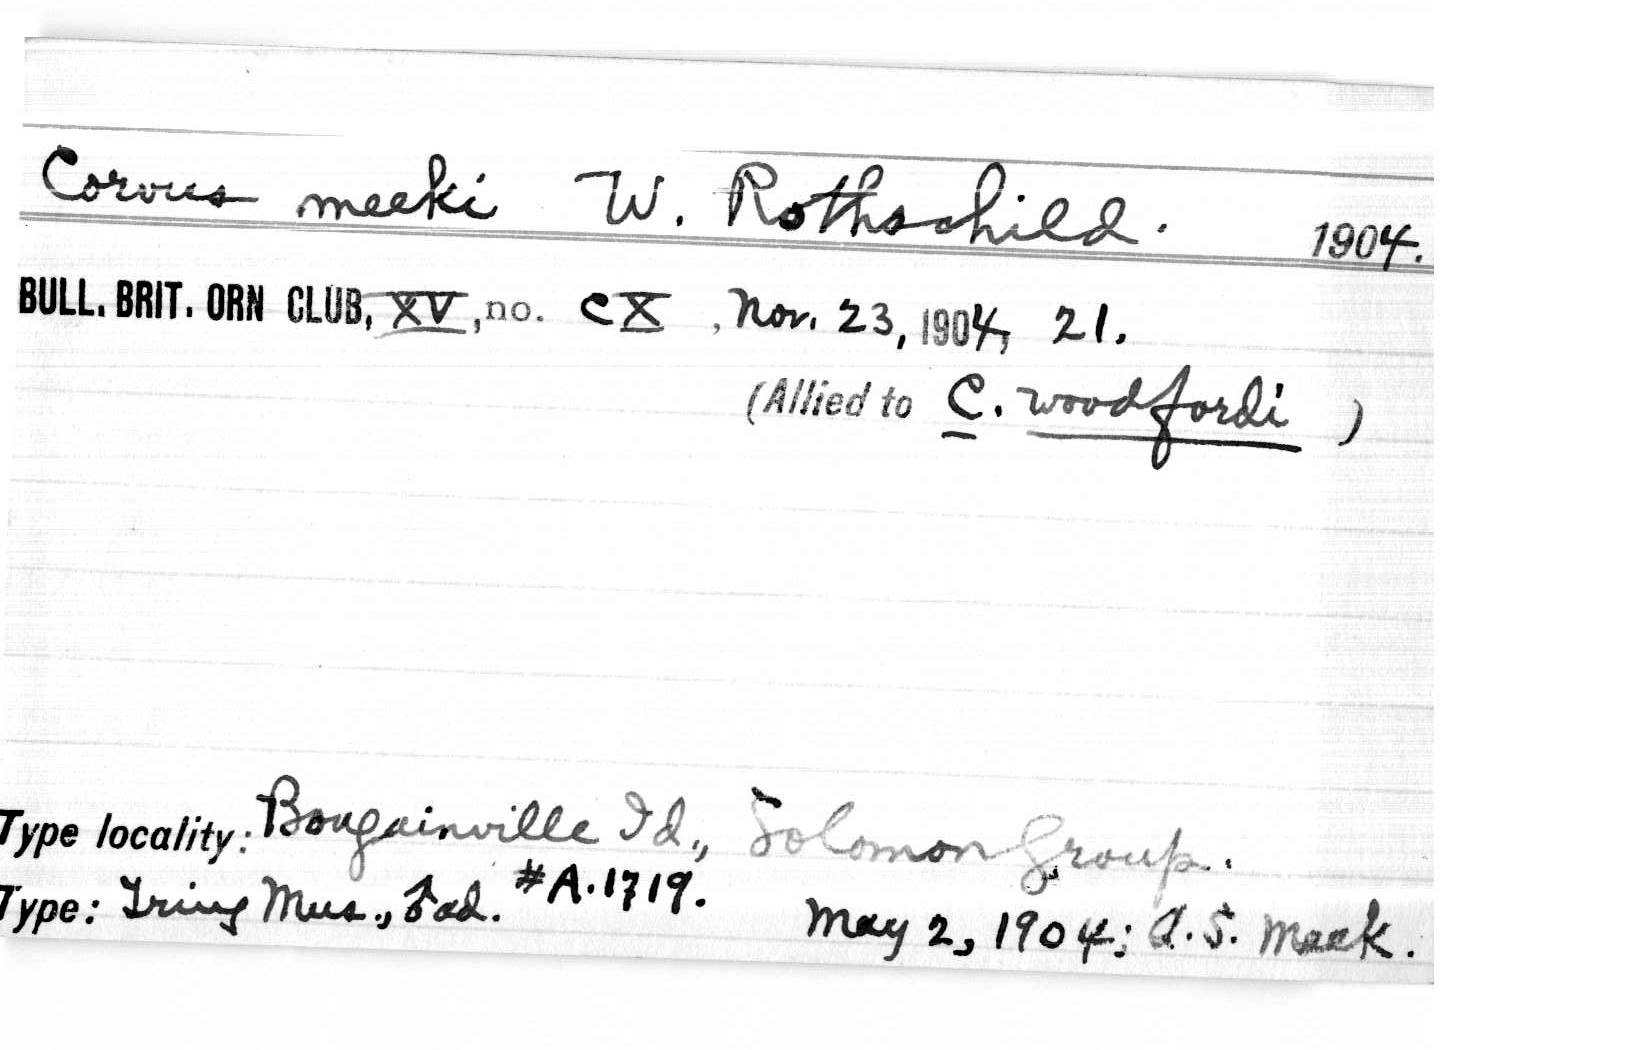 Corvus meeki W. Rothschild. 1904.
BULL. BRIT. ORN CLUB, XV, no. CX, Nov. 23, 1904, 21.
(Allied to C. woodfordi )
Type locality: Bougainville Id., Solomon Group.
Type: Tring Mus., ♂ ad. #A.1719. May 2, 1904; A.S. Meek.